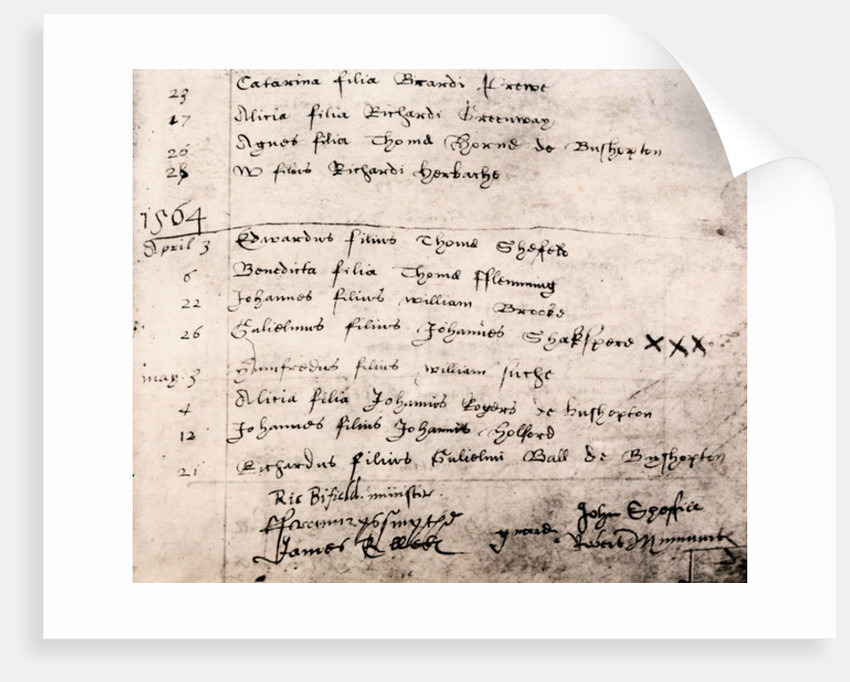 23 Catarina filia Ricardi Crewe
17 Alicia filia Richardi Greenway
26 Agnes filia Thomæ Horne de Bushopton
28 W filius Richardi Herbache
1564
April 3 Edwardus filius Thomæ Shefeld
6 Benedicta filia Thomæ fflemming
22 Johannes filius William Brooke
26 Gulielmus filius Johannes Shakspere XXX
may 3 filius William suche
4 Alicia filia Johannis Rogers de bushopton
12 Johannes filius Johannis Holford
21 Richardus filius Gulielmi Ball de Byshopton
Ric Bifield minister
John
James